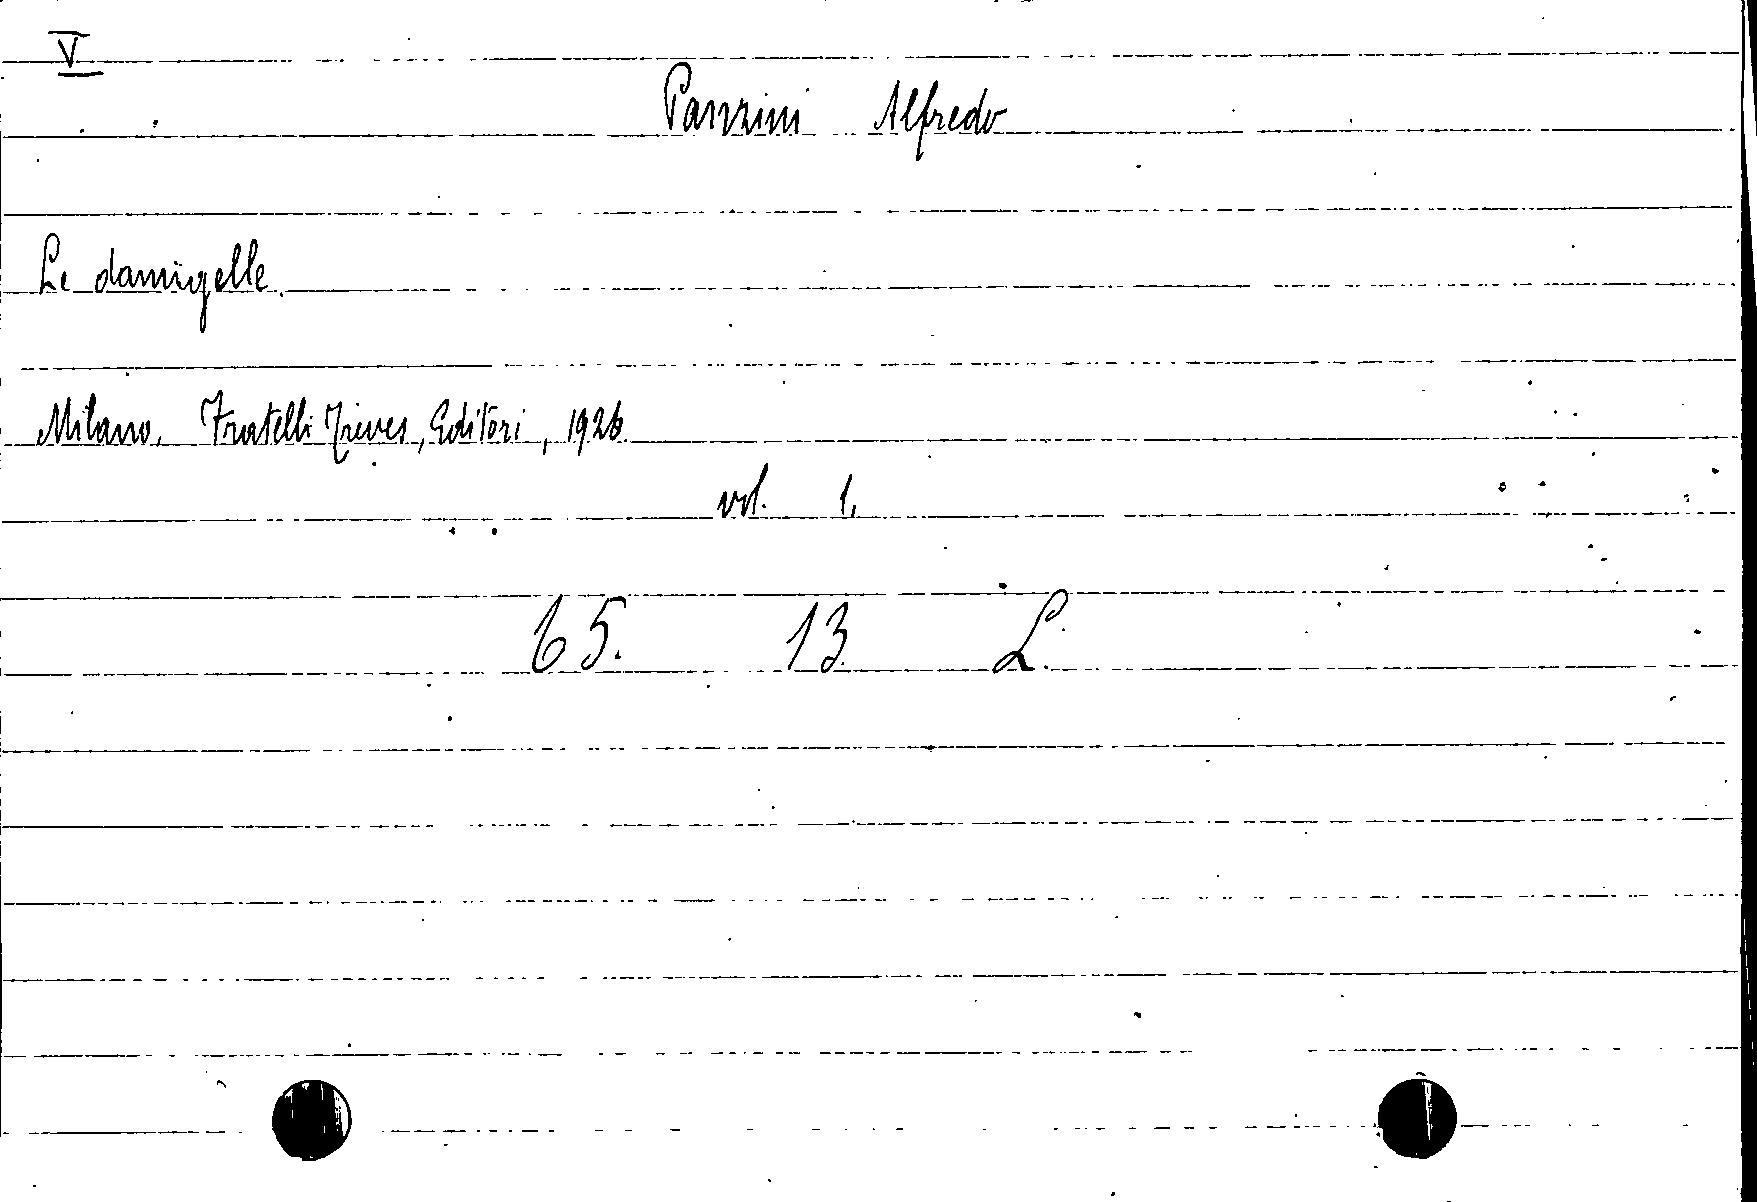 V
Panzini Alfredo
Le damigelle.
Milano, Fratelli Treves, Editori, 1926.
vol. 1.
65. 13. L.